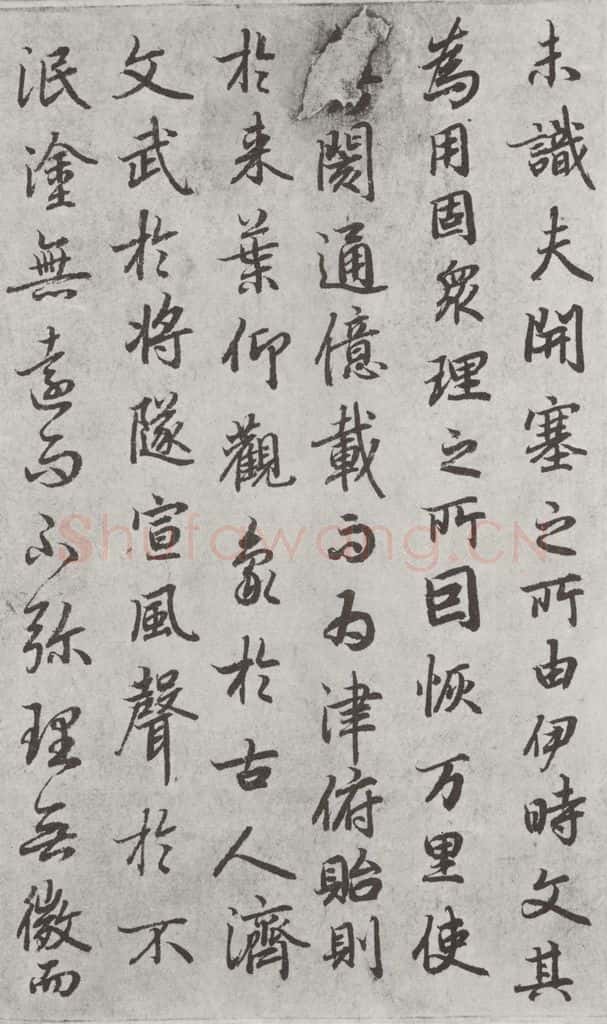 未識夫開塞之所由伊時文其
為用固衆理之所囙恢万里使
閡通億載而为津俯貽則
於来葉仰觀象於古人濟
文武於将隊宣風聲於不
泯塗無遠而不弥理無微而
Shufawang.CN